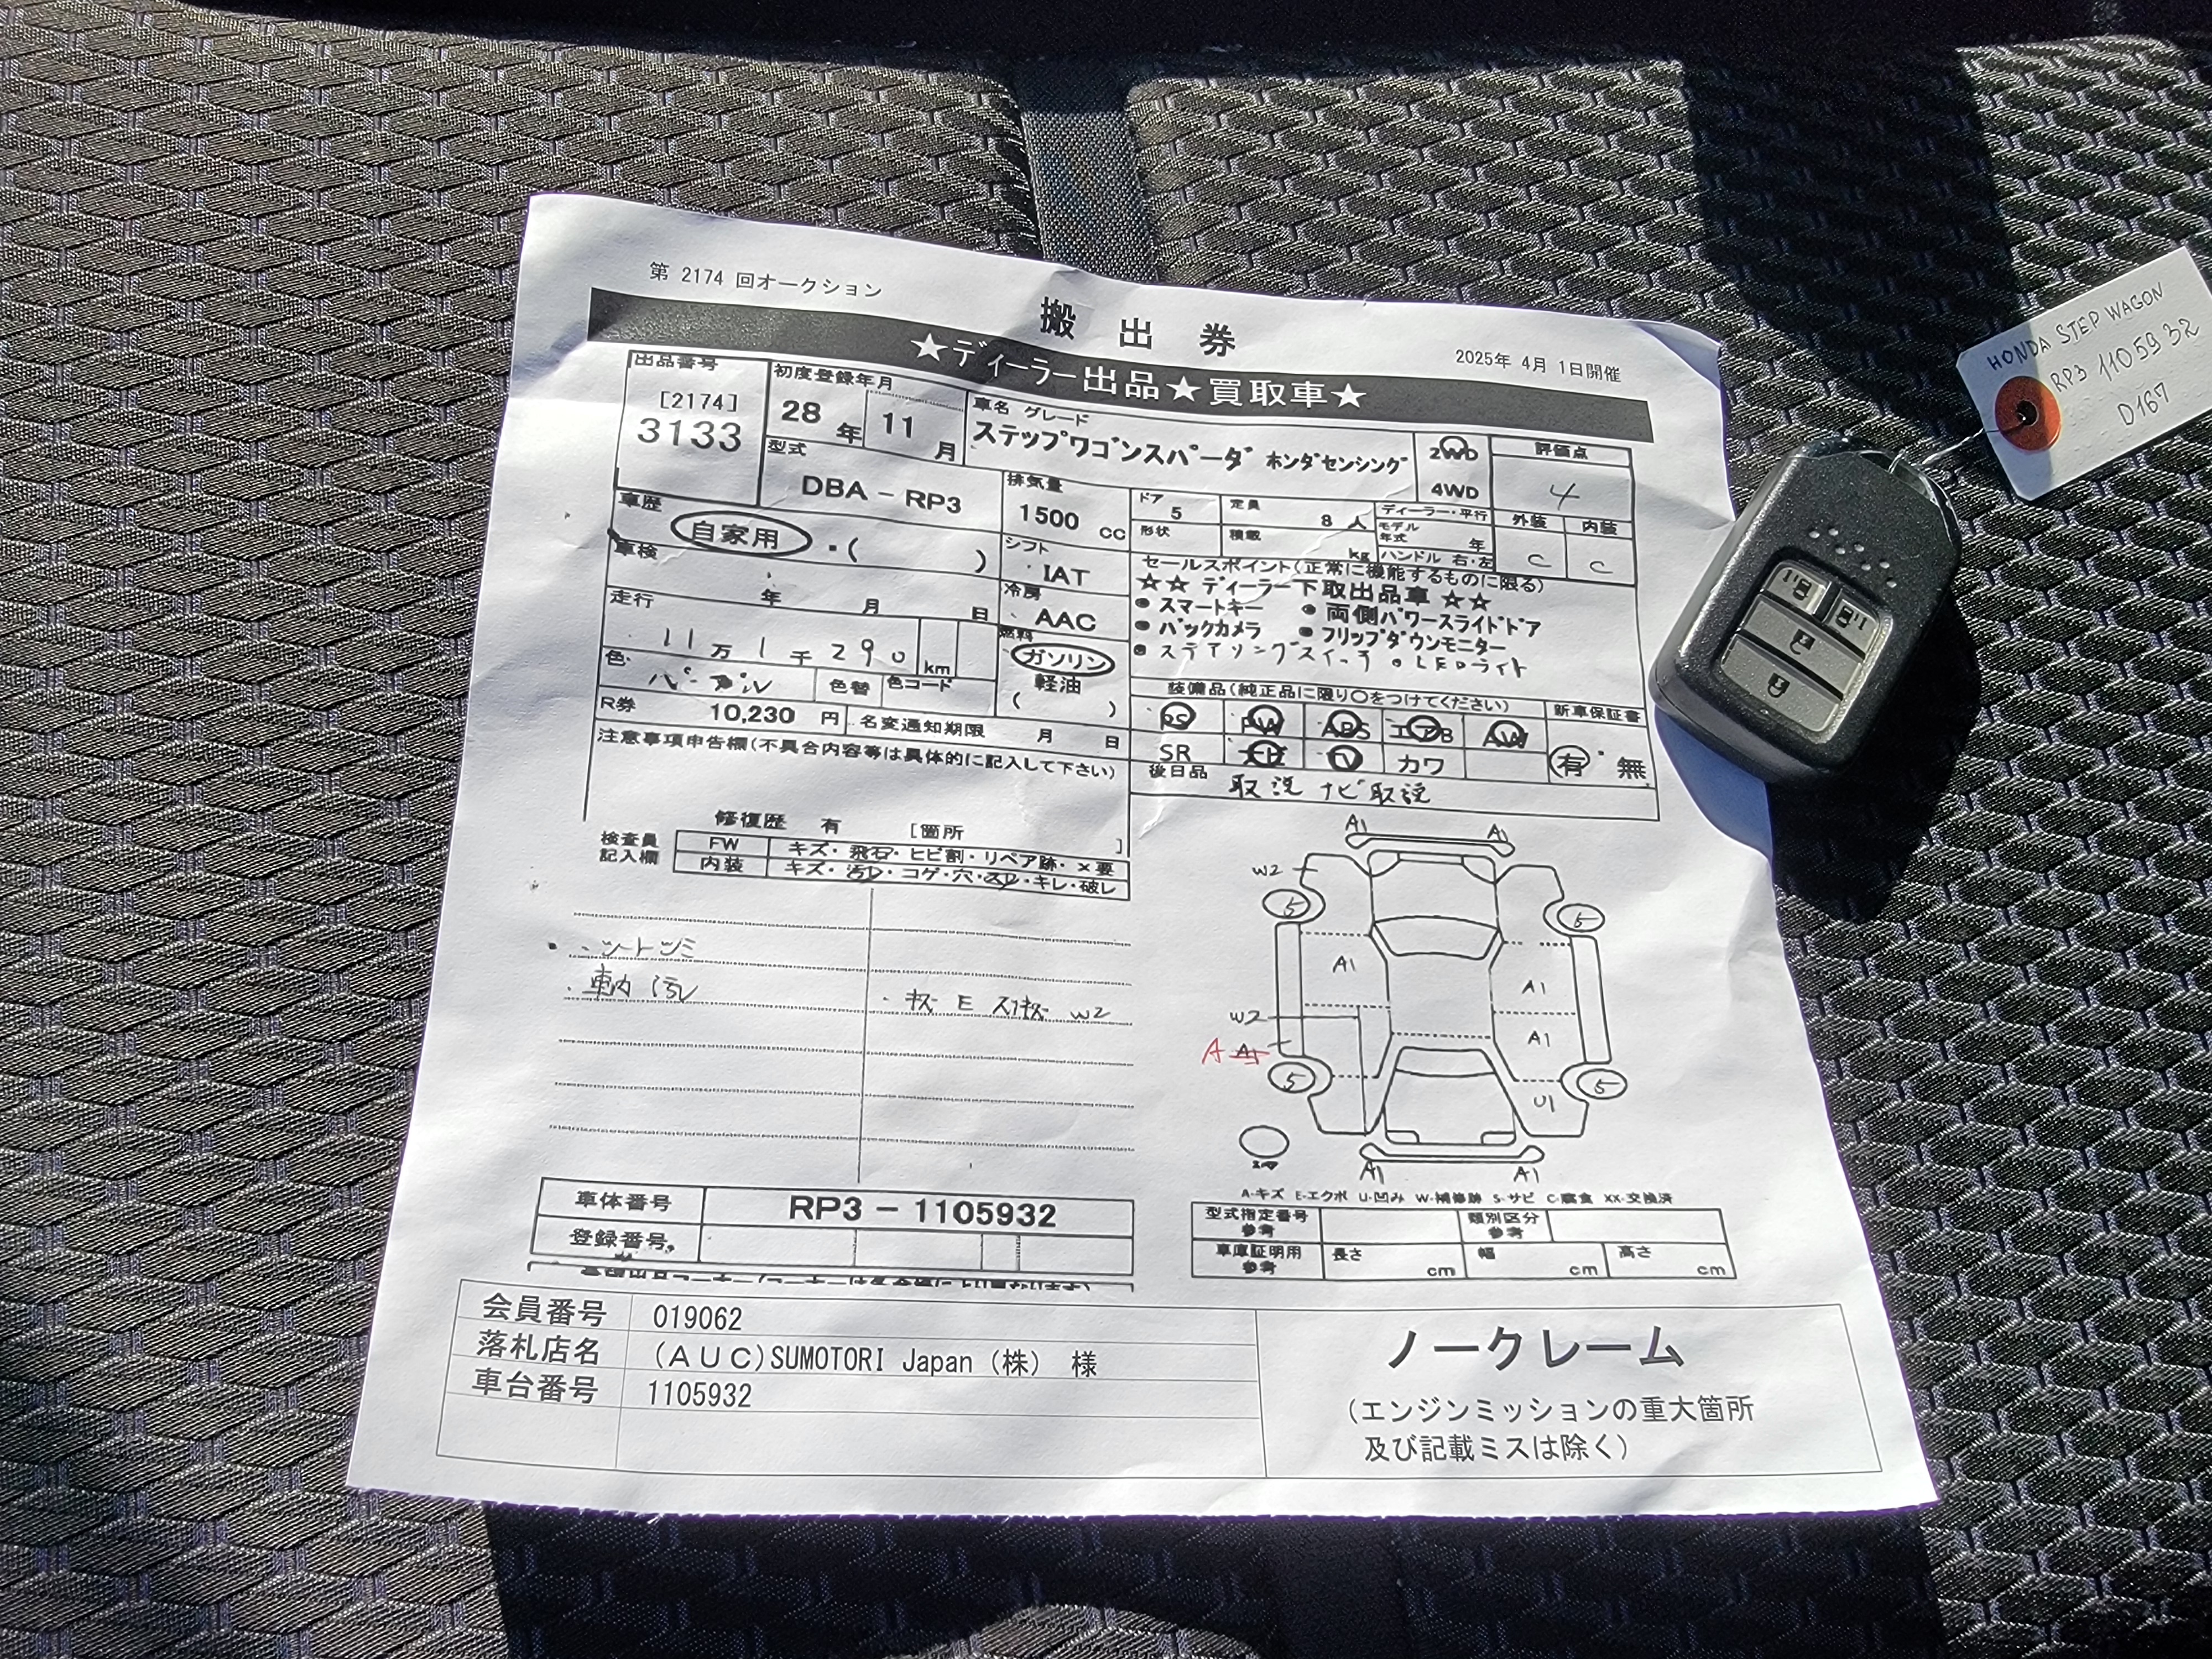 第 2174 回オークション
搬出券
2025年 4月 1日開催
★ディーラー出品★買取車★
出品番号
[2174]
3133
初度登録年月
28年 11月
車名 グレード
ステップワゴンスパーダ ホンダセンシング
2WD
4WD
評価点
4
型式
DBA - RP3
排気量
1500 cc
ドア
5
定員
8 人
ディーラー・平行
形状
積載
kg
モデル年式
年
ハンドル 右・左
外装
C
内装
C
車歴
自家用 ・( )
シフト
IAT
車検
年 月 日
冷房
AAC
走行
11万1千290 km
燃料
ガソリン
軽油
( )
色
パープル
色替
色コード
R券
10,230 円
名変通知期限
月 日
セールスポイント(正常に機能するものに限る)
☆☆ ディーラー下取出品車 ☆☆
● スマートキー ● 両側パワースライドドア
● バックカメラ ● フリップダウンモニター
● ステアリングスイッチ ● LEDライト
装備品(純正品に限り○をつけてください)
新車保証書
PS PW ABS エアB AW
SR ナビ TV カワ
有・無
後日品
取説 ナビ取説
注意事項申告欄(不具合内容等は具体的に記入して下さい)
修復歴 有 [箇所 ]
検査員
記入欄
FW キズ・飛石・ヒビ割・リペア跡・×要
内装 キズ・汚レ・コゲ・穴・スレ・キレ・破レ
・シートシミ
・車内汚レ
・キズ E スリキズ W2
A1 A1
W2
5 5
A1
A1
W2
A1
A A1
5 5
U1
A1 A1
A-キズ E-エクボ U-凹み W-補修跡 S-サビ C-腐食 XX-交換済
車体番号
RP3 - 1105932
登録番号
型式指定番号
参考
類別区分
参考
車庫証明用
参考
長さ cm
幅 cm
高さ cm
会員番号 019062
落札店名 (AUC)SUMOTORI Japan (株) 様
車台番号 1105932
ノークレーム
(エンジンミッションの重大箇所
及び記載ミスは除く)
HONDA STEP WAGON
RP3 1105932
D167